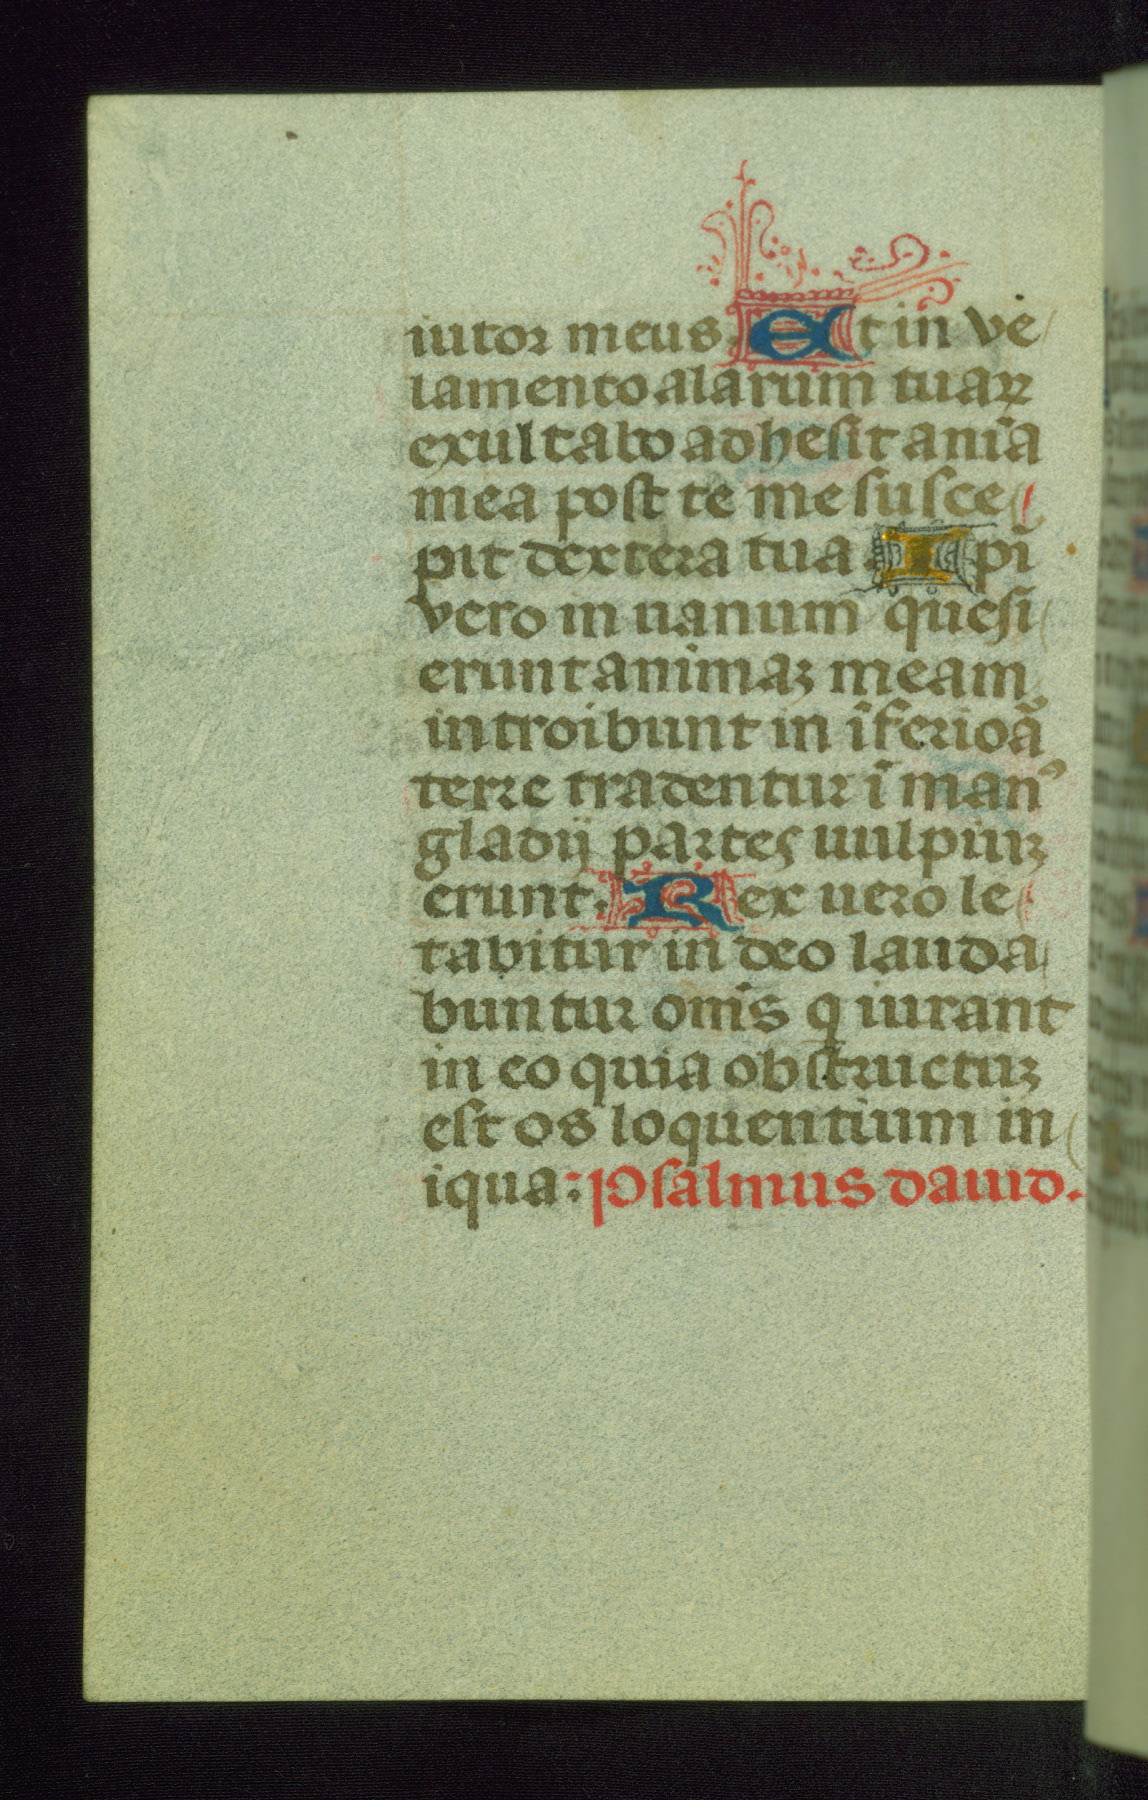 iutor meus. Et in ve
lamento alarum tuaꝝ
exultabo adhesit anīa
mea post te me susce
pit dextera tua. Ipī
vero in uanum quesi
erunt animaꝫ meam
introibunt in īferioã
terre tradentur ī manꝰ
gladij partes uulpiuꝫ
erunt. Rex uero le
tabitur in deo lauda
buntur om̄s q iurant
in eo quia obstructuꝫ
est os loquentium in
iqua: Psalmus dauid.